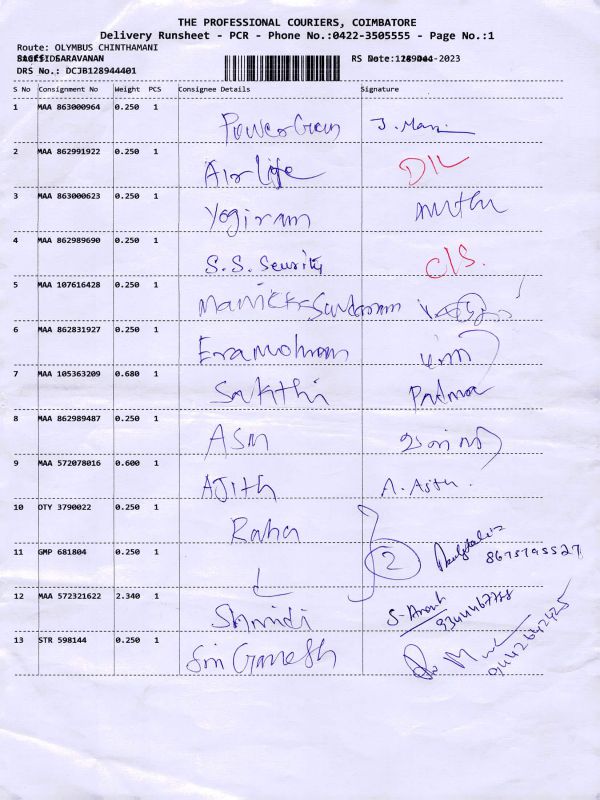 THE PROFESSIONAL COURIERS, COIMBATORE
Delivery Runsheet - PCR - Phone No.:0422-3505555 - Page No.:1
Route: OLYMBUS CHINTHAMANI
SARAVANAN RS
DRS No.: DCJB128944401
S No Consignment No Weight PCS Consignee Details Signature
1 MAA 863000964 0.250 1 PowerGren J. Mani
2 MAA 862991922 0.250 1 Air life D/L
3 MAA 863000623 0.250 1 Yogiram
4 MAA 862989690 0.250 1 S.S. Seurity C/S.
5 MAA 107616428 0.250 1
6 MAA 862831927 0.250 1
7 MAA 105363209 0.680 1 Sakthi Padma
8 MAA 862989487 0.250 1 ASM
9 MAA 572078016 0.600 1 AJith A. Ajith.
10 OTY 3790022 0.250 1 Raha
11 GMP 681804 0.250 1 2
12 MAA 572321622 2.340 1
13 STR 598144 0.250 1 Sri Ganesh